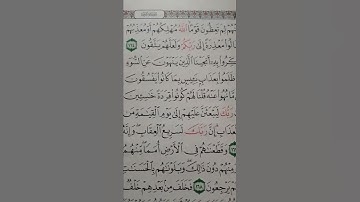 مِّنْهُمْ لِمَ تَعِظُونَ قَوْمًا ٱللَّهُ مُهْلِكُهُمْ أَوْ مُعَذِّبُهُمْ
قَالُوا۟ مَعْذِرَةً إِلَىٰ رَبِّكُمْ وَلَعَلَّهُمْ يَتَّقُونَ ١٦٤
ذُكِّرُوا۟ بِهِۦٓ أَنجَيْنَا ٱلَّذِينَ يَنْهَوْنَ عَنِ ٱلسُّوٓءِ
ظَلَمُوا۟ بِعَذَابٍۭ بَـِٔيسٍۭ بِمَا كَانُوا۟ يَفْسُقُونَ
مَّا نُهُوا۟ عَنْهُ قُلْنَا لَهُمْ كُونُوا۟ قِرَدَةً خَـٰسِـِٔينَ
رَبُّكَ لَيَبْعَثَنَّ عَلَيْهِمْ إِلَىٰ يَوْمِ ٱلْقِيَـٰمَةِ مَن
ٱلْعَذَابِ إِنَّ رَبَّكَ لَسَرِيعُ ٱلْعِقَابِ وَإِنَّهُۥ
وَقَطَّعْنَـٰهُمْ فِى ٱلْأَرْضِ أُمَمًا مِّنْهُمُ
وَمِنْهُمْ دُونَ ذَٰلِكَ وَبَلَوْنَـٰهُم بِٱلْحَسَنَـٰتِ
يَرْجِعُونَ ١٦٨ فَخَلَفَ مِنۢ بَعْدِهِمْ خَلْفٌ